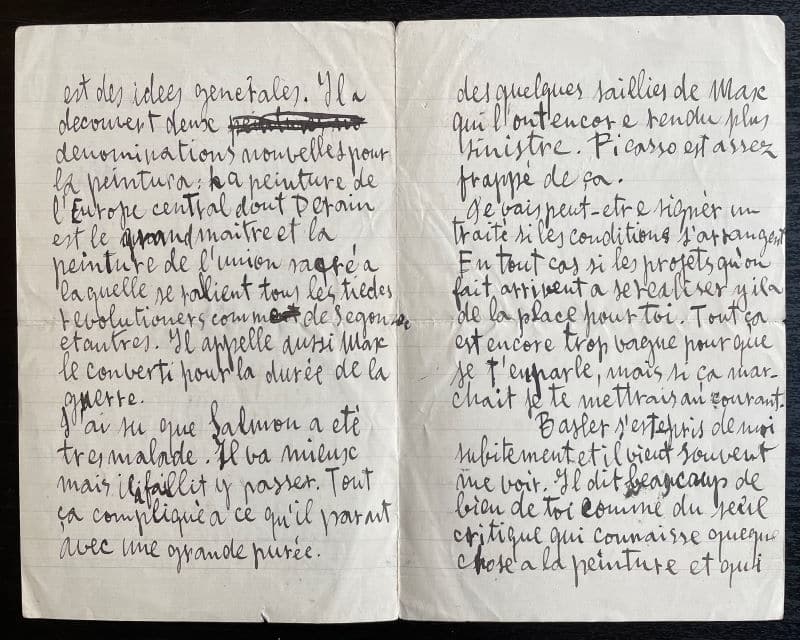 est des idees generales. Il a
decouvert deux
denominations nouvelles pour
la peintura: La peinture de
l'Europe central dout Derain
est le grand maitre et la
peinture de l'union sacré a
laquelle se ralient tous les tiedes
revolutioners comme de Segonzac
et autres. Il appelle aussi Max
le converti pour la durée de la
guerre.
J'ai su que Salmon a eté
tres malade. Il va mieux
mais il a fallit y passer. Tout
ça compliqué a ce qu'il parait
avec une grande purée.
des quelques saillies de Max
qui l'ont encore rendu plus
sinistre. Picasso est assez
frappé de ça.
Je vais peut-etre signer un
traité si les conditions s'arrangent
En tout cas si les projets qu'on
fait arrivent a se realiser y il a
de la place pour toi. Tout ça
est encore trop vague pour que
je t'en parle, mais si ça mar-
chait je te mettrais au courant.
Basler s'est epris de moi
subitement et il vient souvent
me voir. Il dit beaucoup de
bien de toi comme du seul
critique qui connaisse queque
chose a la peinture et qui